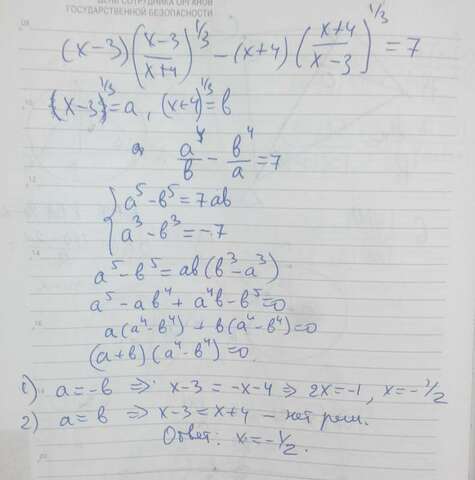 ДЕНЬ СОТРУДНИКА ОРГАНОВ
ГОСУДАРСТВЕННОЙ БЕЗОПАСНОСТИ
(x-3)((x-3)/(x+4))^1/3 - (x+4)((x+4)/(x-3))^1/3 = 7
(x-3)^1/3 = a, (x+4)^1/3 = b
a^4/b - b^4/a = 7
{ a^5 - b^5 = 7ab
a^3 - b^3 = -7
a^5 - b^5 = ab(b^3 - a^3)
a^5 - ab^4 + a^4b - b^5 = 0
a(a^4 - b^4) + b(a^4 - b^4) = 0
(a+b)(a^4 - b^4) = 0
1) a = -b ⇒ x-3 = -x-4 ⇒ 2x = -1, x = -1/2
2) a = b ⇒ x-3 = x+4 - нет реш.
Ответ: x = -1/2.